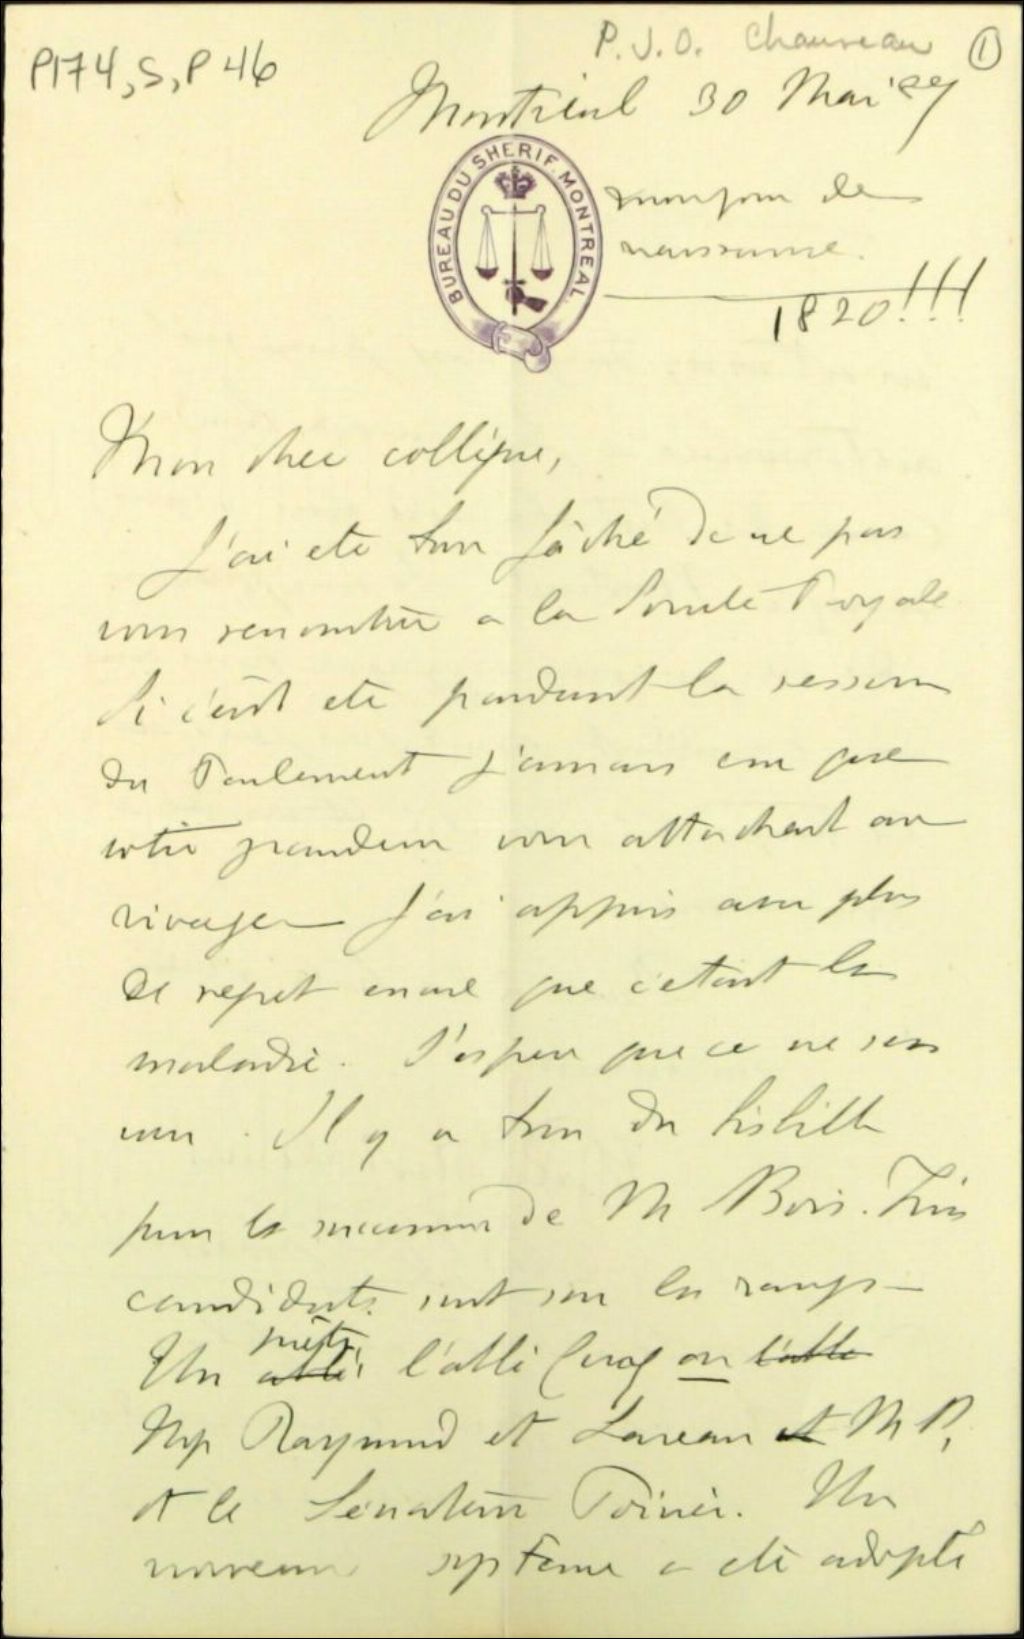 P174, S, P46
P. J. O. Chauveau ①
Montréal 30 Mai '89
mon jour de
naissance.
1820!!!
BUREAU DU SHERIF. MONTREAL
Mon cher collègue,
J'ai été bien fâché de ne pas
vous rencontrer a la Société Royale
Si c'eut ete pendant la session
du Parlement j'aurais cru que
votre grandeur vous attachait au
rivage J'ai appris avec plus
de regret encore que c'etait la
maladie. J'espere que ce ne sera
rien. Il y a bien du
pour la succession de M Bois. Trois
candidats sont sur les rangs
Un prêtre l'abbé Cuoq ou l'abbé
Mgr Raymond et Lareau et M P,
et le Senateur Poirier. Un
nouveau systeme a été adopté